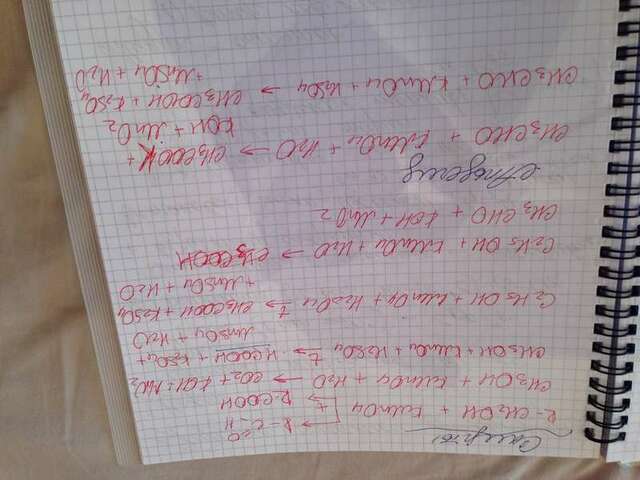 Спирты
R-C=O
-H
R-CH2OH + KMnO4 → R-COOH
CH3OH + KMnO4 + H2O → CO2 + KOH + MnO2
CH3OH + KMnO4 + H2SO4 →t HCOOH + K2SO4 +
MnSO4 + H2O
C2H5OH + KMnO4 + H2SO4 →t CH3COOH + K2SO4
+ MnSO4 + H2O
C2H5OH + KMnO4 + H2O →
CH3CHO + KOH + MnO2
Альдегид
CH3CHO + KMnO4 + H2O → CH3COOK +
KOH + MnO2
CH3CHO + KMnO4 + H2SO4 → CH3COOH + K2SO4
+ MnSO4 + H2O